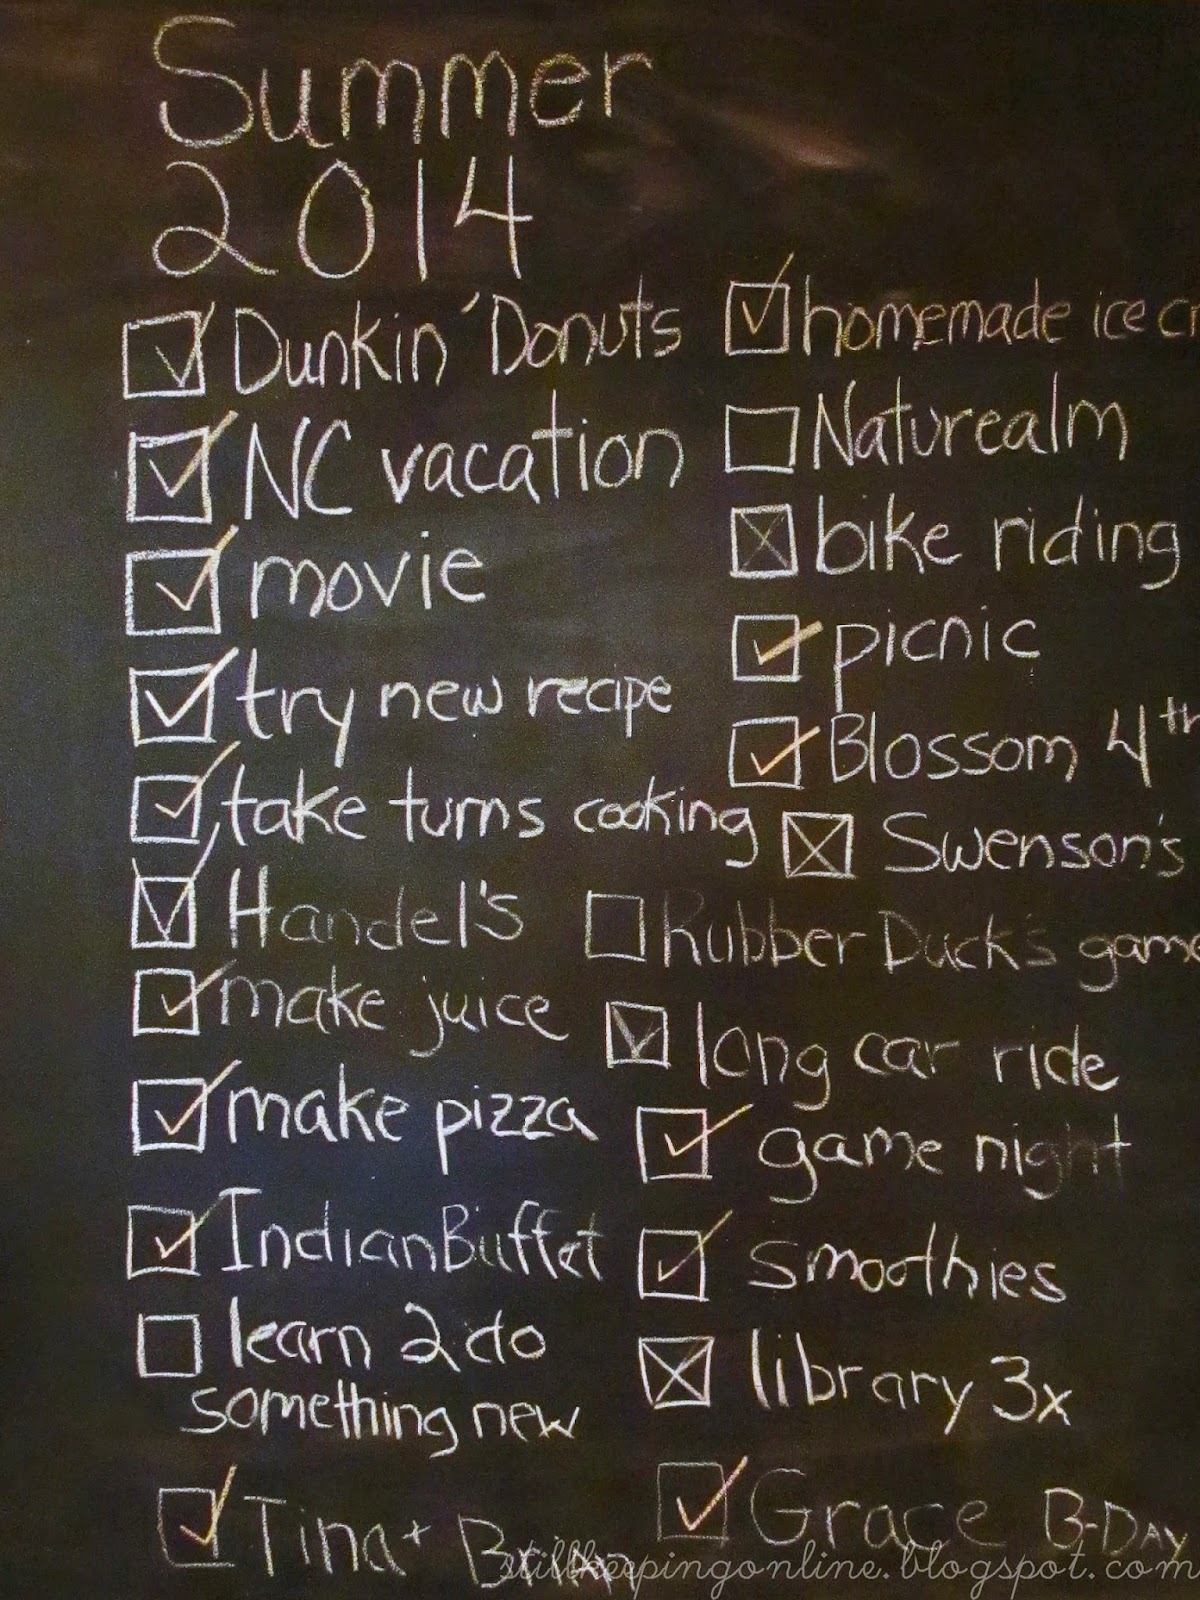 Summer
2014
Dunkin' Donuts
NC vacation
movie
try new recipe
take turns cooking
Handel's
make juice
make pizza
Indian Buffet
learn 2 do
something new
Tina +
homemade ice
Naturealm
bike riding
picnic
Blossom 4th
Swenson's
Rubber Duck's game
long car ride
game night
smoothies
library 3x
Grace B-DAY
stillkeepingonline.blogspot.com